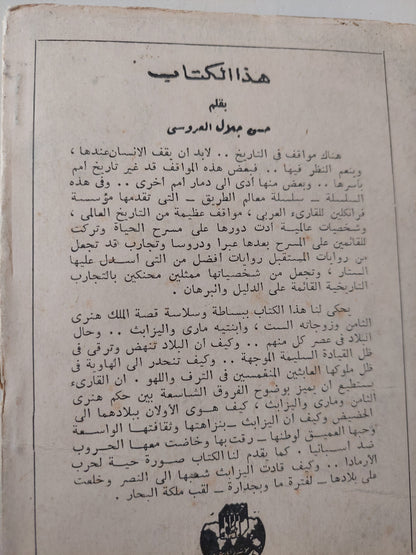 هذا الكتاب
بقلم
حسن جلال العروسى
هناك مواقف فى التاريخ .. لابد ان يقف الانسان عندها ،
وينعم النظر فيها .. فبعض هذه المواقف قد غير تاريخ امم
بأسرها .. وبعض منها أدى الى دمار امم اخرى .. وفى هذه
السلسلة ــ سلسلة معالم الطريق ــ التى تقدمها مؤسسة
فرانكلين للقارىء العربى ، مواقف عظيمة من التاريخ العالمى ،
وشخصيات عالمية أدت دورها على مسرح الحياة وتركت
للقائمين على المسرح بعدها عبرا ودروسا وتجارب قد تجعل
من روايات المستقبل روايات أفضل من التى أسدل عليها
الستار ، وتجعل من شخصياتها ممثلين محنكين بالتجارب
التاريخية القائمة على الدليل والبرهان .
يحكى لنا هذا الكتاب ببساطة وسلاسة قصة الملك هنرى
الثامن وزوجاته الست ، وابنتيه مارى واليزابث .. وحال
البلاد فى عصر كل منهم .. وكيف ان البلاد تنهض وترقى فى
ظل القيادة السليمة الموجهة .. وكيف تنحدر الى الهاوية فى
ظل ملوكها العابثين المنغمسين فى الترف واللهو . ان القارىء
يستطيع ان يميز بوضوح الفروق الشاسعة بين حكم هنرى
الثامن ومارى واليزابث ، كيف هوى الاولان ببلادهما الى
الحضيض وكيف ان اليزابث ــ بنزاهتها وثقافتها الواسعة
وحبها العميق لوطنها ــ رقت بها وخاضت معها الحروب
ضد اسبانيا . كما يقدم لنا الكتاب صورة حية لحرب
الارمادا .. وكيف قادت اليزابث شعبها الى النصر وخلعت
على بلادها ــ لفترة ما وبجدارة ــ لقب ملكة البحار .